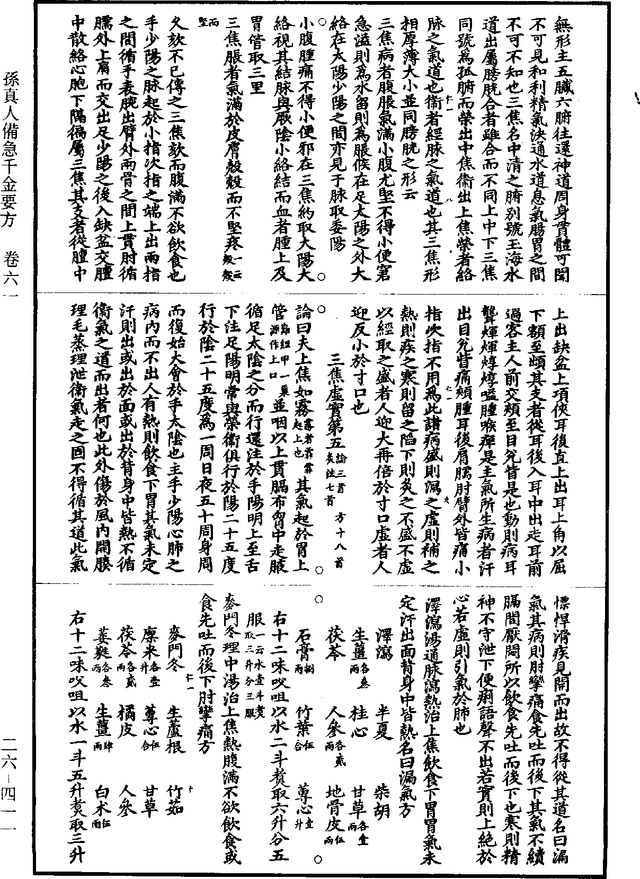 無形主五臟六腑往還神道周身貫體可聞
不可見和利精氣決通水道息氣腸胃之間
不可不知也三焦名中清之腑別號玉海水
道出屬膀胱合者雖合而不同上中下三焦
同號為孤腑而榮出中焦衛出上焦榮者絡
脉之氣道也衛者經脉之氣道也其三焦形
相厚薄大小並同膀胱之形云
三焦病者腹脹氣滿小腹尤堅不得小便窘
急溢則為水留則為脹候在足太陽之外大
絡在太陽少陽之間亦見于脉取委陽
小腹腫痛不得小便邪在三焦約取太陽大
絡視其結脉與厥陰小絡結而血者腫上及
胃管取三里
三焦脹者氣滿於皮膚殼殼而不堅疼
久欬不已傳之三焦欬而腹滿不欲飲食也
手少陽之脉起於小指次指之端上出兩指
之間循手表腕出臂外兩骨之間上貫肘循
臑外上肩而交出足少陽之後入缺盆交膻
中散絡心胞下膈徧屬三焦其支者從膻中
上出缺盆上項俠耳後直上出耳上角以屈
下額至䪼其支者從耳後入耳中出走耳前
過客主人前交頰至目兌眥是也動則病耳
聾煇煇焞焞嗌腫喉痺是主氣所生病者汗
出目兌眥痛頰腫耳後肩臑肘臂外皆痛小
指次指不用為此諸病盛則瀉之虛則補之
熱則疾之寒則留之陷下則灸之不盛不虛
以經取之盛者人迎大再倍於寸口虛者人
迎反小於寸口也
三焦虛實第五 論三首 方十八首 灸法七首
論曰夫上焦如霧霧者霏霏起上也其氣起於胃上
管 並咽以上貫膈布胷中走腋
循足太陰之分而行還注於手陽明上至舌
下注足陽明常與榮衛俱行於陽二十五度
行於陰二十五度為一周日夜五十周身周
而復始大會於手太陰也主手少陽心肺之
病內而不出人有熱則飲食下胃其氣未定
汗則出或出於面或出於背身中皆熱不循
衛氣之道而出者何也此外傷於風內開腠
理毛蒸理泄衛氣走之固不得循其道此氣
慓悍滑疾見開而出故不得從其道名曰漏
氣其病則肘攣痛食先吐而後下其氣不續
膈間厭悶所以飲食先吐而後下也寒則精
神不守泄下便痢語聲不出若實則上絕於
心若虛則引氣於肺也
澤瀉湯通脉瀉熱治上焦飲食下胃胃氣未
定汗出面背身中皆熱名曰漏氣方
澤瀉 半夏 柴胡
生薑各叁兩 桂心 甘草各壹兩
茯苓 人參各貳兩 地骨皮伍兩
石膏捌兩 竹葉伍合 蓴心壹升
右十二味㕮咀以水二斗煑取六升分五
服一云水壹斗煑取三升分三服
麥門冬理中湯治上焦熱腹滿不欲飲食或
食先吐而後下肘攣痛方
麥門冬 生蘆根 竹茹
廩米各壹升 蓴心伍合 甘草
茯苓各貳兩 橘皮 人參
萎蕤各叁兩 生薑肆兩 白朮伍兩
右十二味㕮咀以水一斗五升煑取三升
孫真人備急千金要方 卷六一
二六—四一一